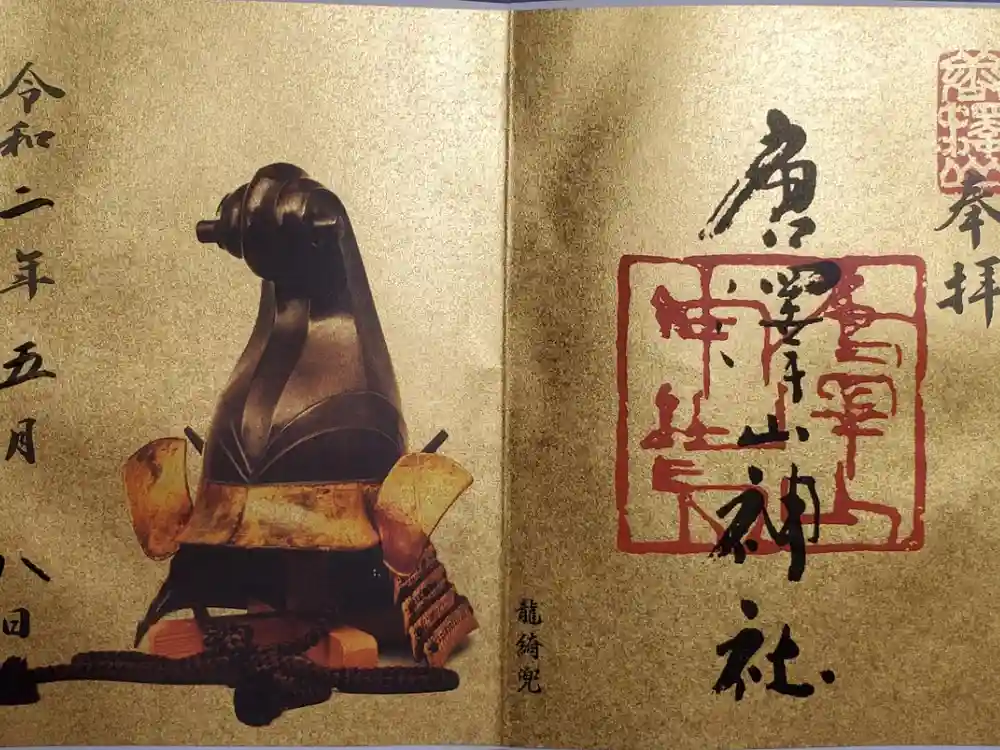 奉拝
唐澤山神社
唐澤山神社
龍綺兜
令和二年五月八日